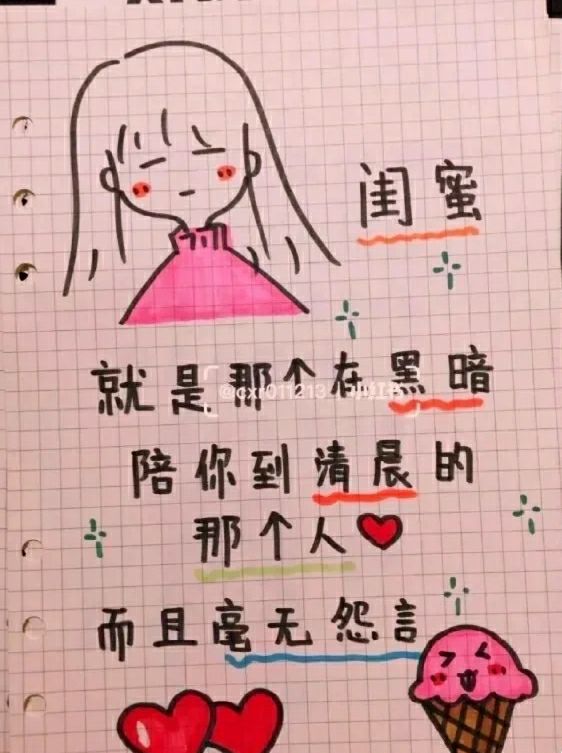 闺蜜
就是那个在黑暗
@cxr011213
陪你到清晨的
那个人
而且毫无怨言